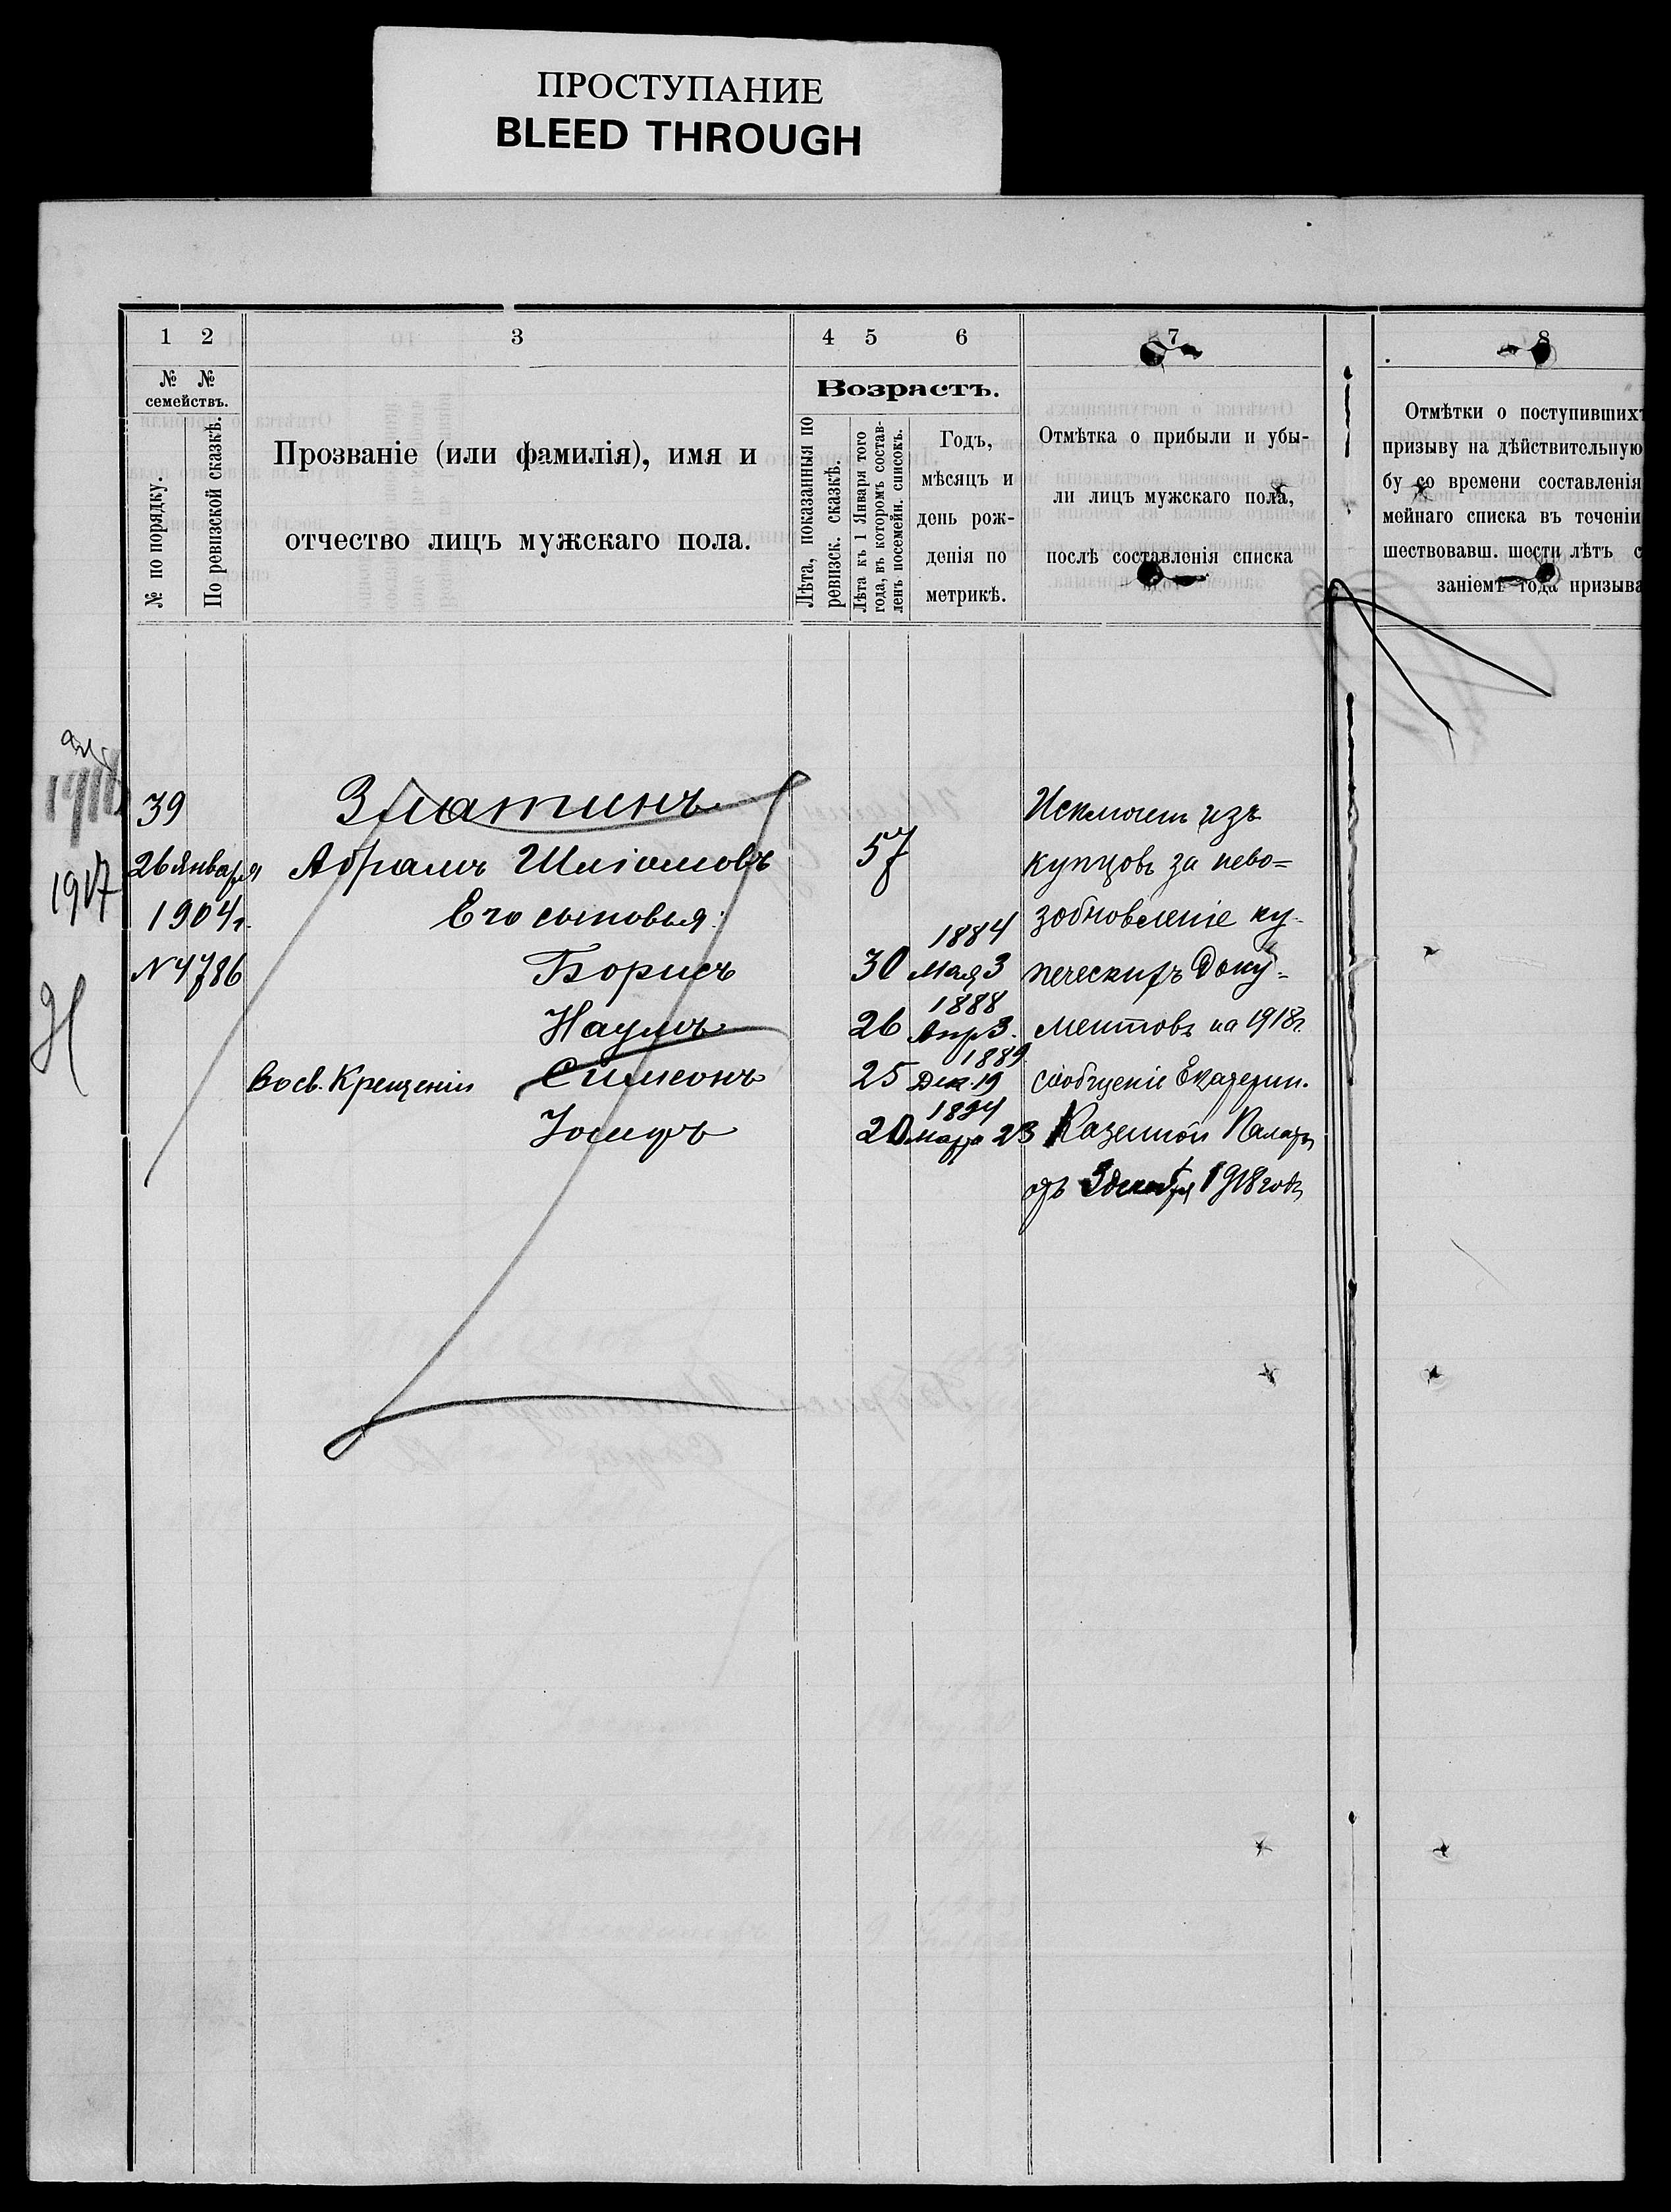 ПРОСТУПАНИЕ
BLEED THROUGH
1 2 3 4 5 6 7 8
№ № семействъ.
№ по порядку.
По ревизской сказкѣ.
Прозваніе (или фамилія), имя и
отчество лицъ мужскаго пола.
Возрастъ.
Лѣта, показанныя по
ревизск. сказкѣ.
Лѣта къ 1 Января того
года, въ которомъ состав-
ленъ посемейн. списокъ.
Годъ,
мѣсяцъ и
день рож-
денія по
метрикѣ.
Отмѣтка о прибыли и убы-
ли лицъ мужскаго пола,
послѣ составленія списка
Отмѣтки о поступившихъ
призыву на дѣйствительную
бу со времени составленія
мейнаго списка въ теченіи
шествовавш. шести лѣтъ с
заніемъ года призыва
39 Златинъ Исключенъ изъ
26 Января Абрамъ Шліомовъ 57 купцовъ за нево=
1917
1904 г. Его сыновья: зобновленіе ку-
1884
N 4786 Борисъ 30 Мая 3 печескихъ доку=
1888
Наумъ 26 Апр 3. ментовъ на 1918 г.
1889
Во св. Крещеніи Симеонъ 25 Дек. 19 сообщеніе Екатерин.
1894
Іосифъ 20 марта 23 Казенной Палаты
отъ 3 декабря 1918 года